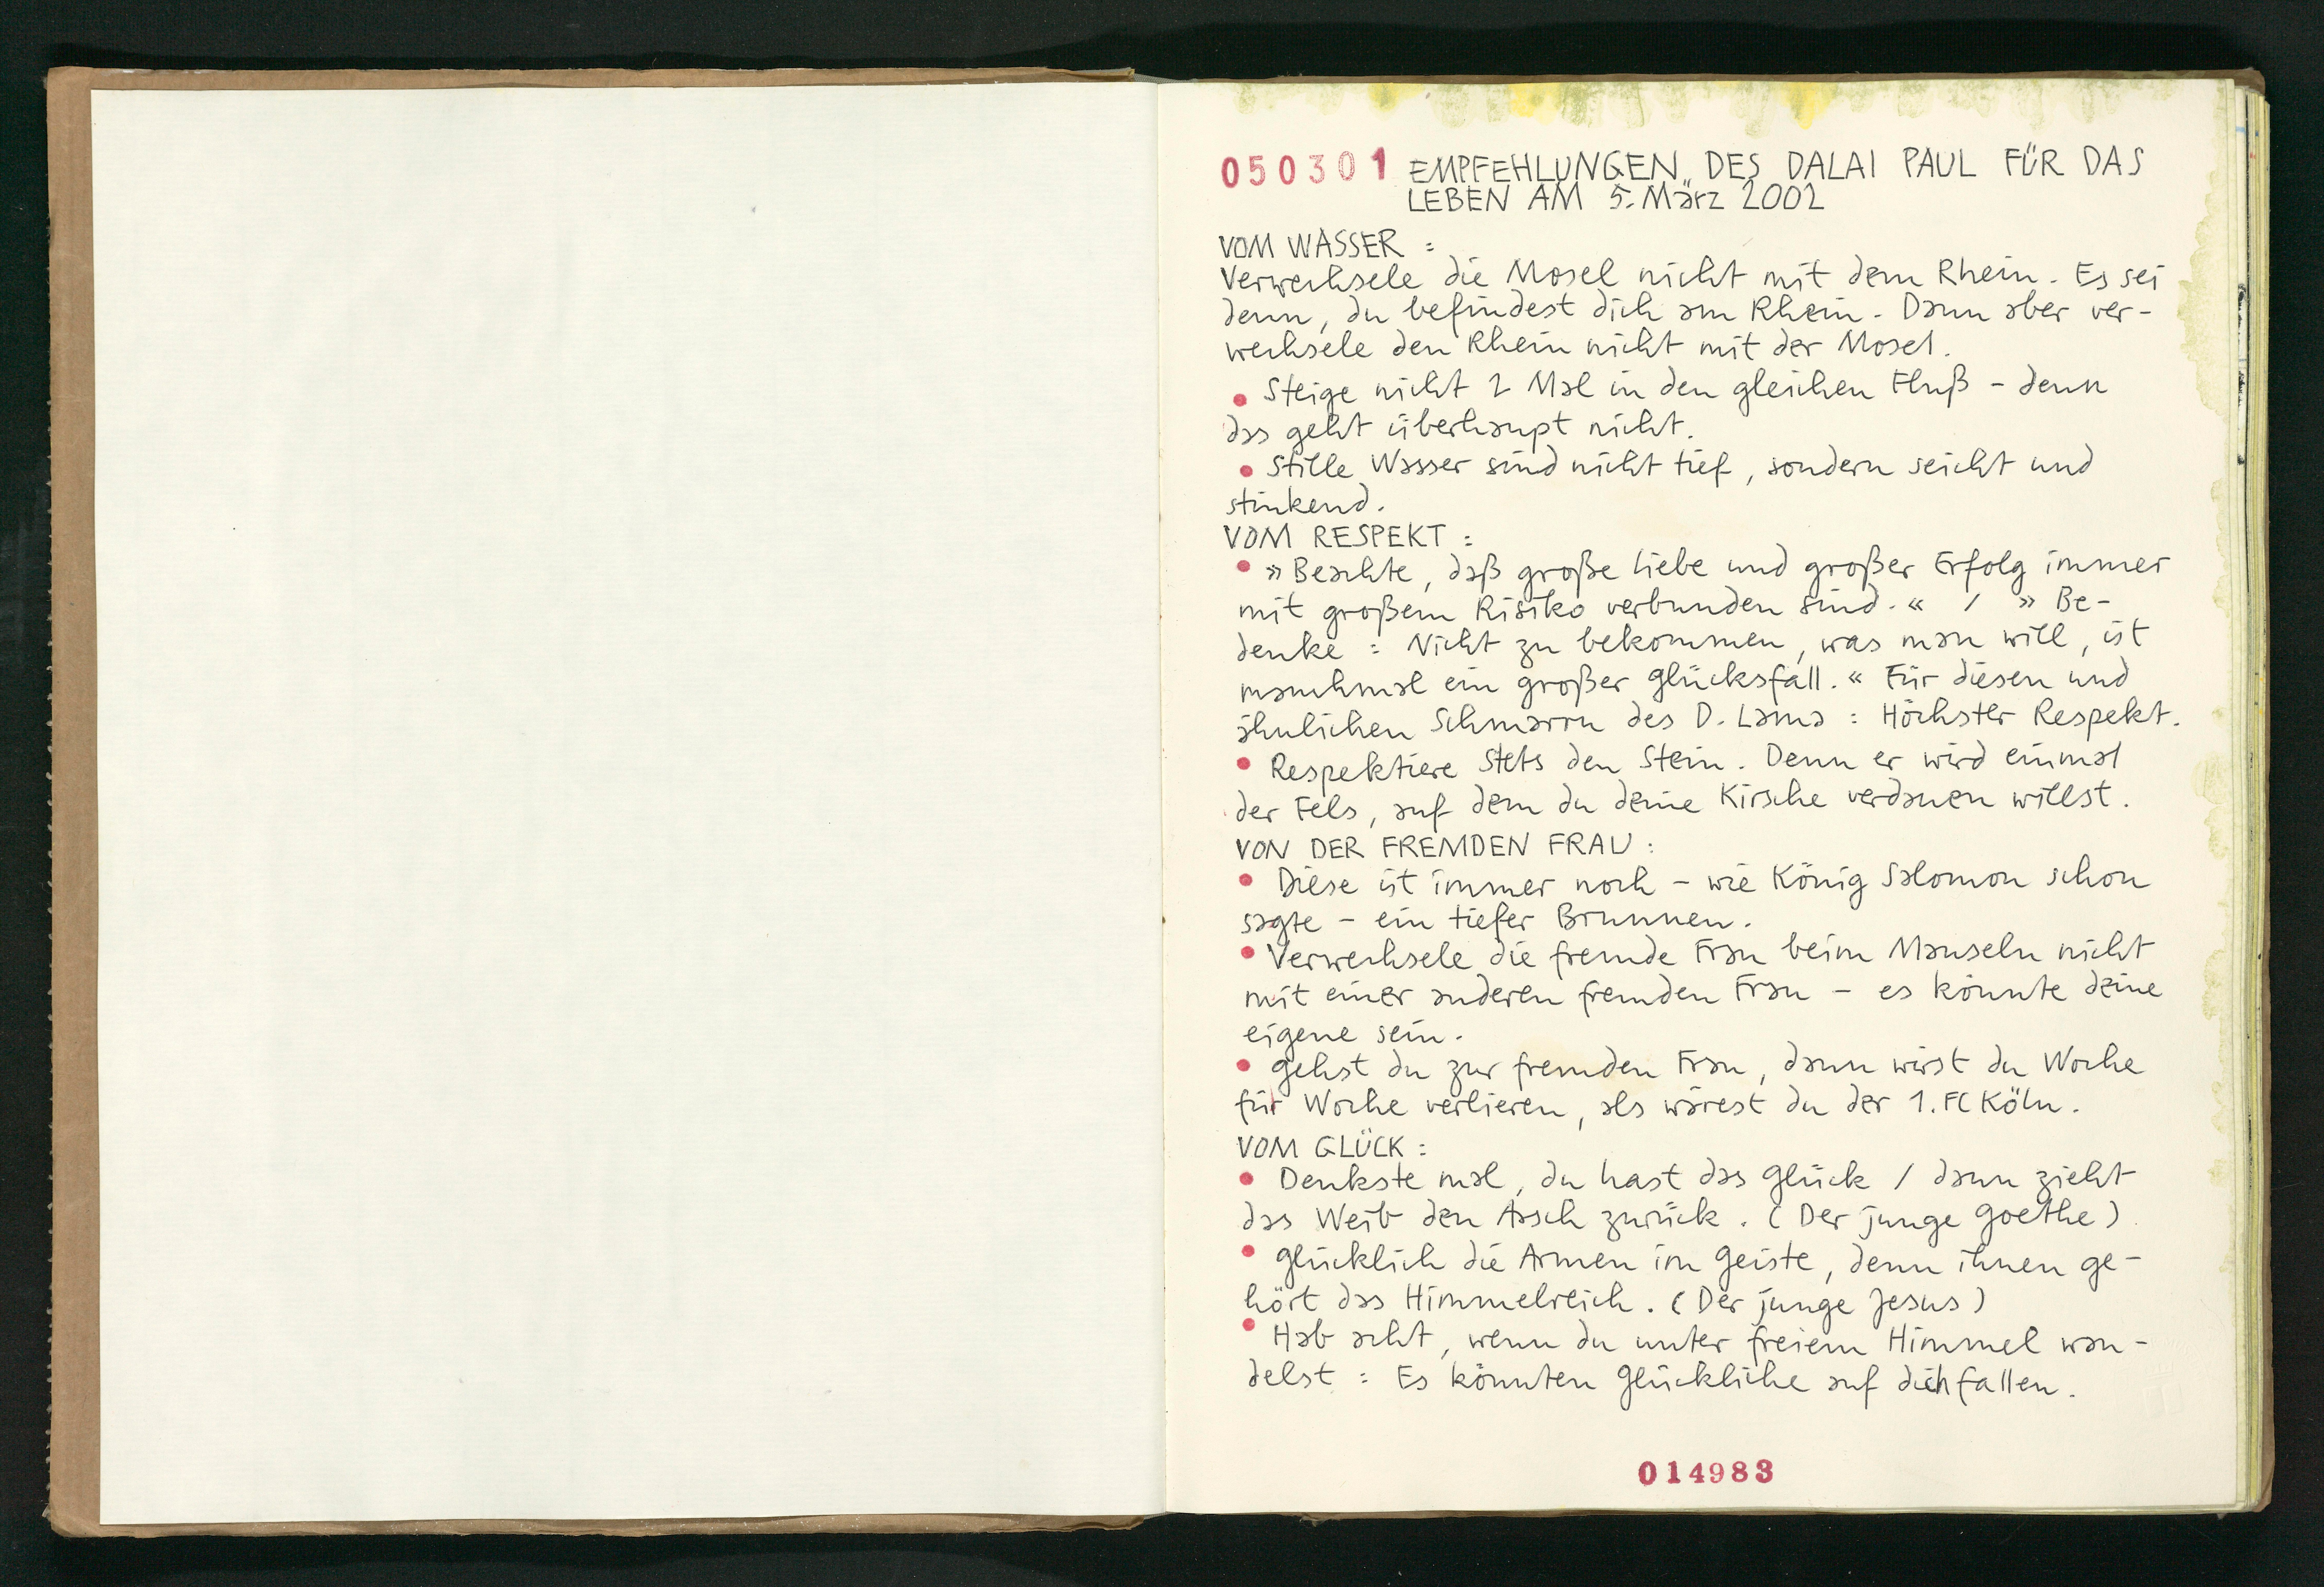 050301 EMPFEHLUNGEN DES DALAI PAUL FÜR DAS
LEBEN AM 5. März 2002
VOM WASSER :
Verwechsele die Mosel nicht mit dem Rhein. Es sei
denn, du befindest dich am Rhein. Dann aber ver-
wechsele den Rhein nicht mit der Mosel.
• Steige nicht 2 Mal in den gleichen Fluß – denn
das geht überhaupt nicht.
• Stille Wasser sind nicht tief, sondern seicht und
stinkend.
VOM RESPEKT :
• »Beachte, daß große Liebe und großer Erfolg immer
mit großem Risiko verbunden sind.« / »Be-
denke : Nicht zu bekommen, was man will, ist
manchmal ein großer Glücksfall.« Für diesen und
ähnlichen Schmarrn des D. Lama : Höchster Respekt.
• Respektiere stets den Stein. Denn er wird einmal
der Fels, auf dem du deine Kirsche verdauen willst.
VON DER FREMDEN FRAU :
• Diese ist immer noch – wie König Salomon schon
sagte – ein tiefer Brunnen.
• Verwechsele die fremde Frau beim Mauseln nicht
mit einer anderen fremden Frau – es könnte deine
eigene sein.
• Gehst du zur fremden Frau, dann wirst du Woche
für Woche verlieren, als wärest du der 1. FC Köln.
VOM GLÜCK :
• Denkste mal, du hast das Glück / dann zieht
das Weib den Arsch zurück. (Der junge Goethe)
• Glücklich die Armen im Geiste, denn ihnen ge-
hört das Himmelreich. (Der junge Jesus)
• Hab acht, wenn du unter freiem Himmel wan-
delst : Es könnten Glückliche auf dich fallen.
014983